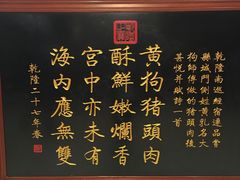 乾隆南巡經宿連品嘗
縣城門側姓黃乳名大
狗師傅做的豬頭肉後
甚悅并賦詩一首
黃狗猪頭肉
酥鮮嫩爛香
宮中亦未有
海内應無雙
乾隆二十七年春